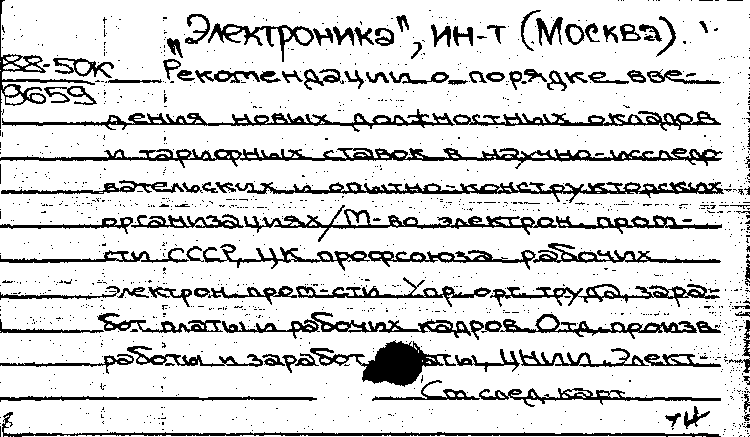 "Электроника", ин-т (Москва). 1.
88-50к Рекомендации о порядке вве-
9659
дения новых должностных окладов
и тарифных ставок в научно-исследо
вательских и опытно-конструкторских
организациях/М-во электрон. пром-
сти СССР, ЦК профсоюза рабочих
электрон. пром-сти. Упр. орг. труда, зара-
бот. платы и рабочих кадров. Отд. произв.
работы и заработ. платы, ЦНИИ "Элект-
См. след. карт.